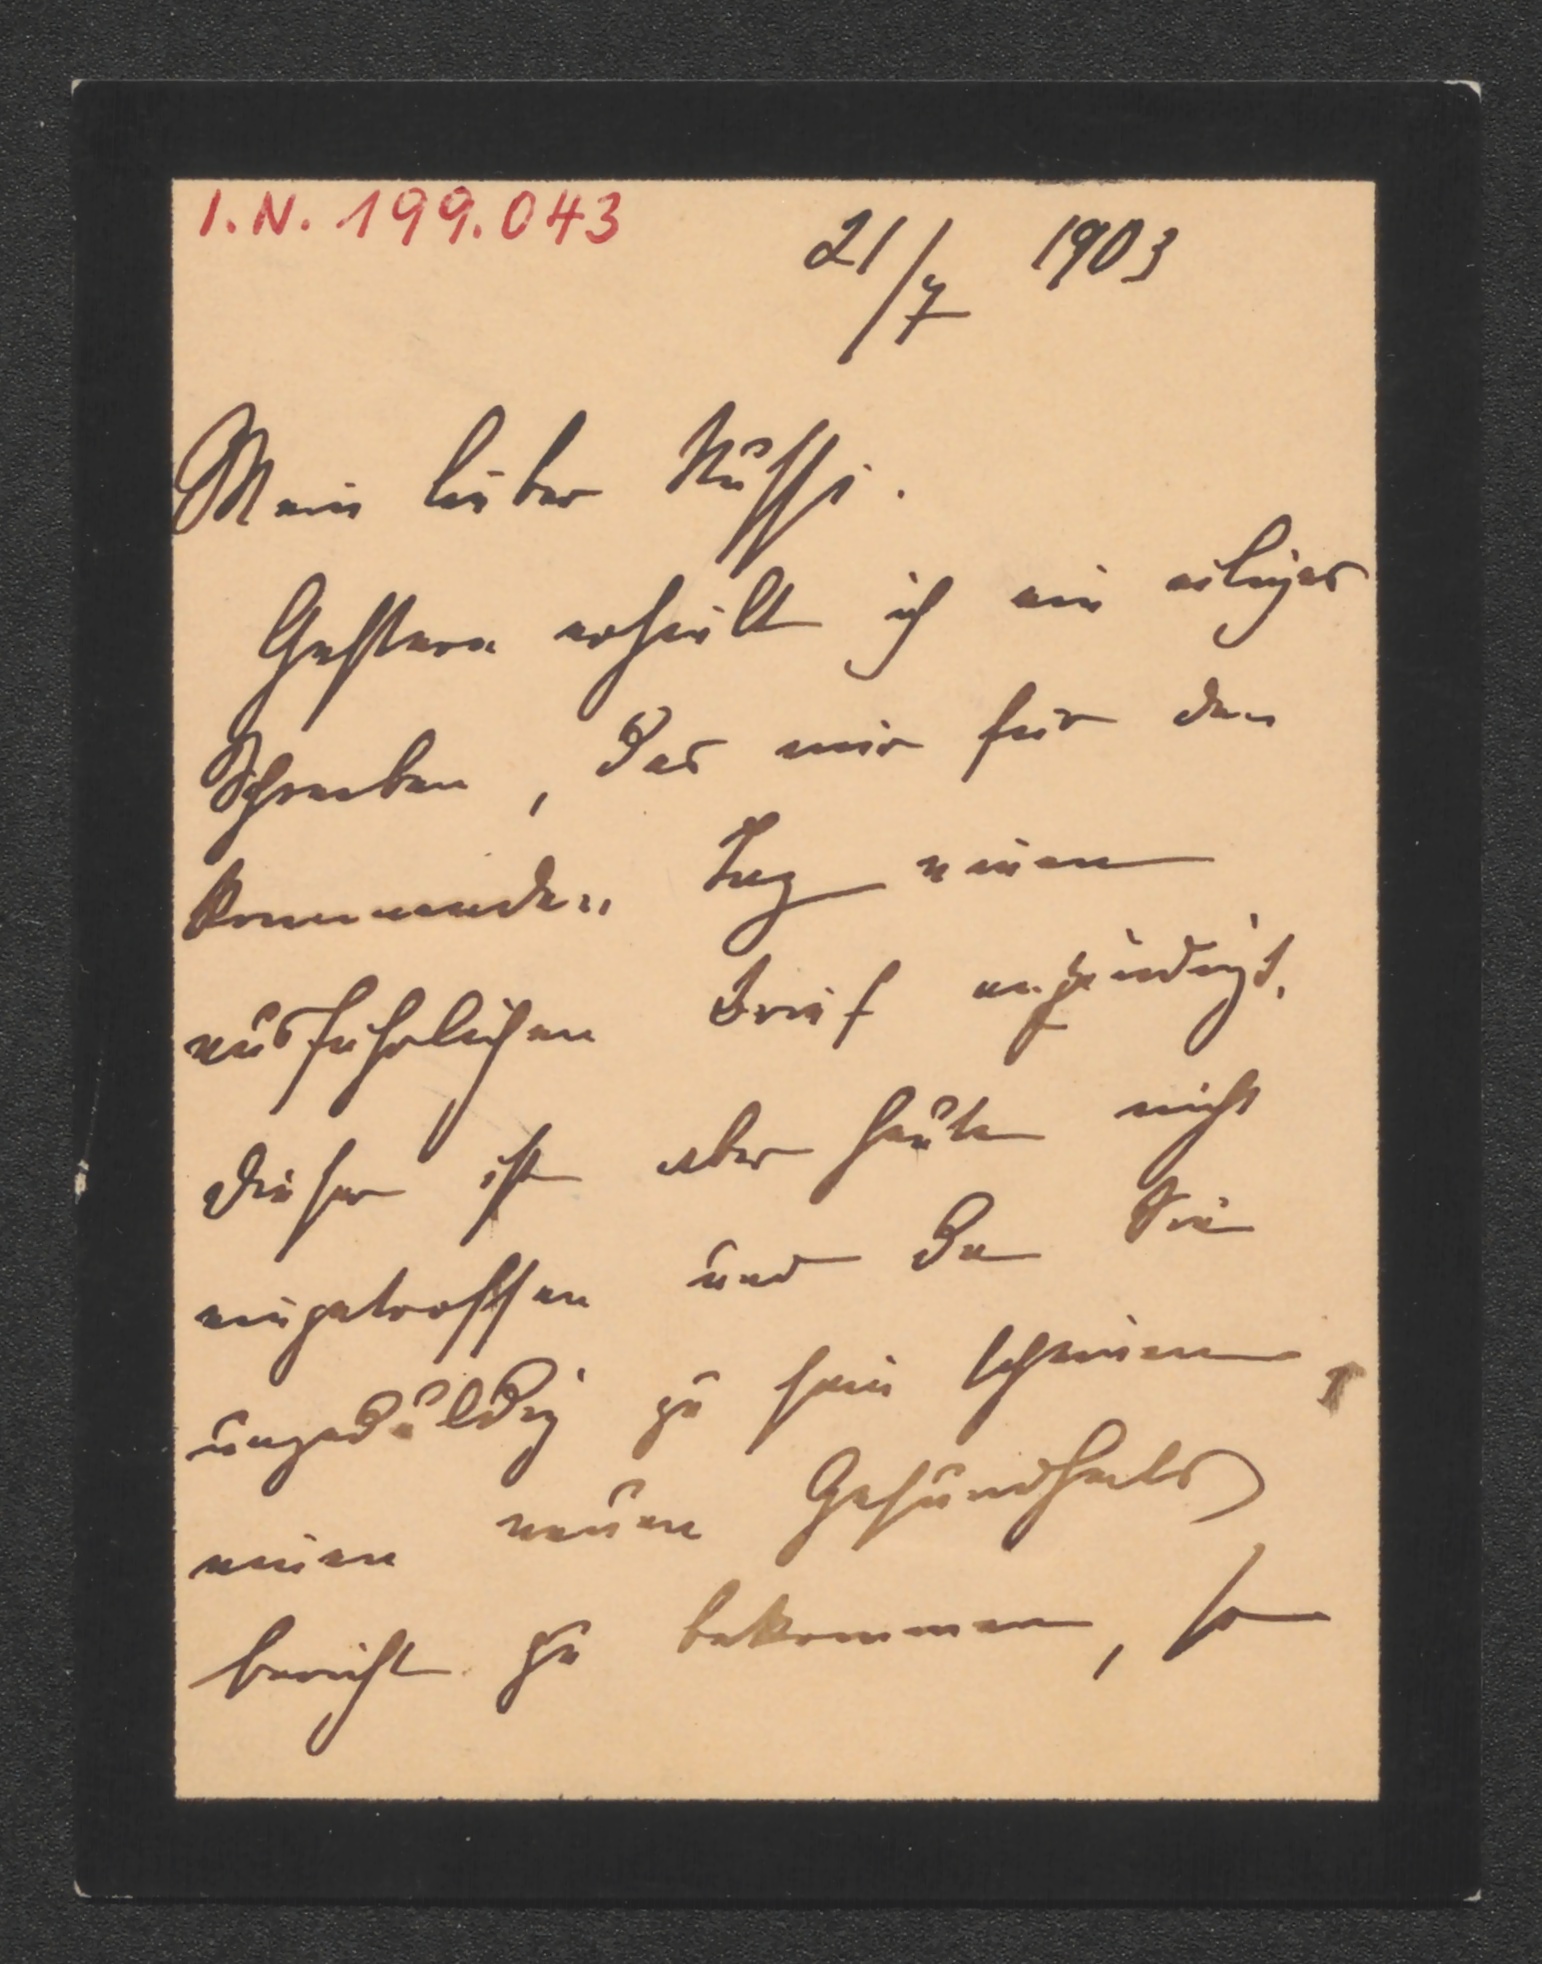 I.N. 199.043
21/7 1903
Mein lieber
Gestern erhielt ich ein eiliges
Schreiben, das mir für den
kommenden Tag einen
ausführlichen Brief ankündigt.
Dieser ist aber heute nicht
eingetroffen und da Sie
ungeduldig zu sein scheinen,
einen neuen Gesundheits
bericht zu bekommen, so